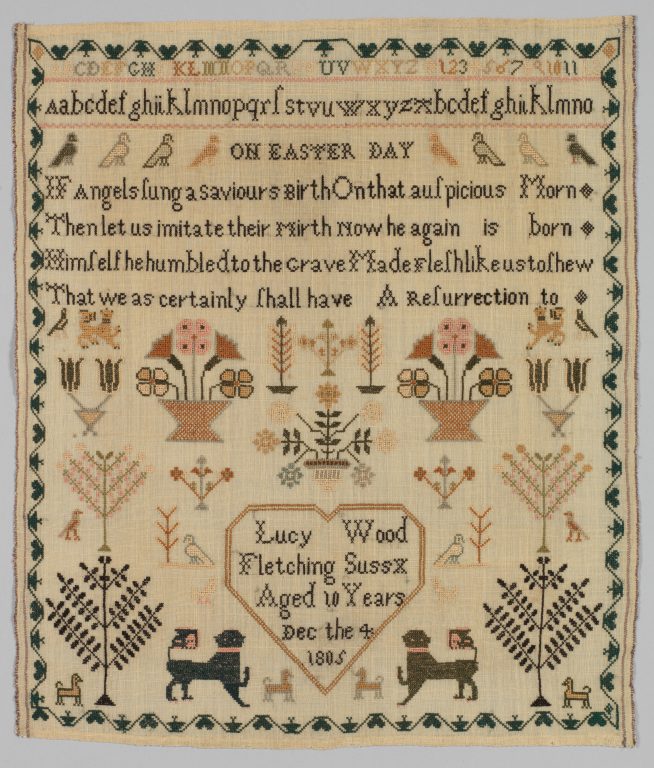 CDEFGH KLMNOPQR UVWXYZ 123 567 91011
aabcdefghijklmnopqrſstvuwxyzzbcdefghijklmno
ON EASTER DAY
IF Angels ſung a Saviours Birth On that auſpicious Morn
Then let us imitate their Mirth Now he again is born
Himſelf he humbled to the Grave Made Fleſh like us to ſhew
That we as certainly ſhall have A Reſurrection to
Lucy Wood
Fletching Sussx
Aged 10 Years
Dec the 4
1805